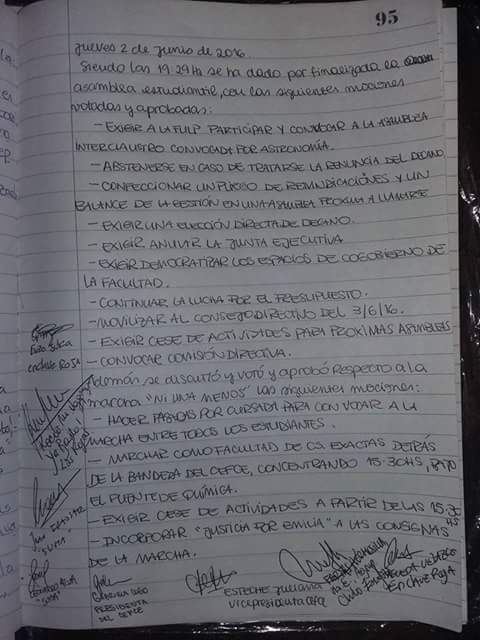 95
Jueves 2 de Junio de 2016
Siendo las 19:29Hs se ha dado por finalizada la
asamblea estudiantil, con las siguientes mociones
votadas y aprobadas:
- EXIGIR A LA FULP PARTICIPAR Y CONVOCAR A LA ASAMBLEA
INTERCLAUSTRO CONVOCADA POR ASTRONOMÍA.
- ABSTENERSE EN CASO DE TRATARSE LA RENUNCIA DEL DECANO
- CONFECCIONAR UN PLIEGO DE REIVINDICACIONES Y UN
BALANCE DE LA GESTIÓN EN UNA ASAMBLEA PROXIMA A LLAMARSE
- EXIGIR UNA ELECCIÓN DIRECTA DE DECANO.
- EXIGIR ANULAR LA JUNTA EJECUTIVA
- EXIGIR DEMOCRATIZAR LOS ESPACIOS DE COGOBIERNO DE
LA FACULTAD.
- CONTINUAR LA LUCHA POR EL PRESUPUESTO.
- MOVILIZAR AL CONSEJO DIRECTIVO DEL 3/6/16.
- EXIGIR CESE DE ACTIVIDADES PARA PROXIMAS ASAMBLEAS
- CONVOCAR COMISIÓN DIRECTIVA.
Además se discutió y votó y aprobó respecto a la
marcha "NI UNA MENOS" las siguientes mociones:
- HACER PASADAS POR CURSADA PARA CONVOCAR A LA
MARCHA ENTRE TODOS LOS ESTUDIANTES.
- MARCHAR COMO FACULTAD DE CS EXACTAS DETRÁS
DE LA BANDERA DEL CEFCE, CONCENTRANDO 15:30HS, BAJO
EL PUENTE DE QUÍMICA.
- EXIGIR CESE DE ACTIVIDADES A PARTIR DE LAS 15:30
HS
- INCORPORAR "JUSTICIA POR EMILIA" A LAS CONSIGNAS
DE LA MARCHA.
ROJA
PRESIDENTA
DEL CEFCE
ESTECHE Juliana
vicepresidenta